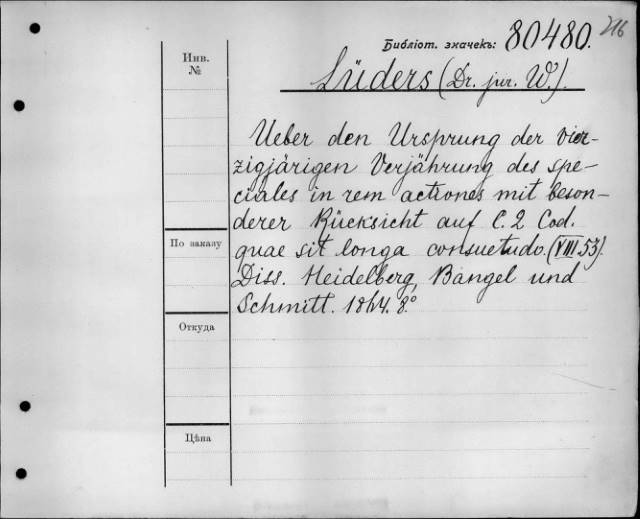 216
Библіот. значекъ: 80480.
Инв. №
Lüders (Dr. jur. W.).
Ueber den Ursprung der vier-
zigjärigen Verjährung des spe-
ciales in rem actiones mit beson-
derer Rücksicht auf C. 2 Cod.
По заказу
quae sit longa consuetudo. (VIII.53).
Diss. Heidelberg, Bangel und
Schmitt. 1864. 8°
Откуда
Цѣна